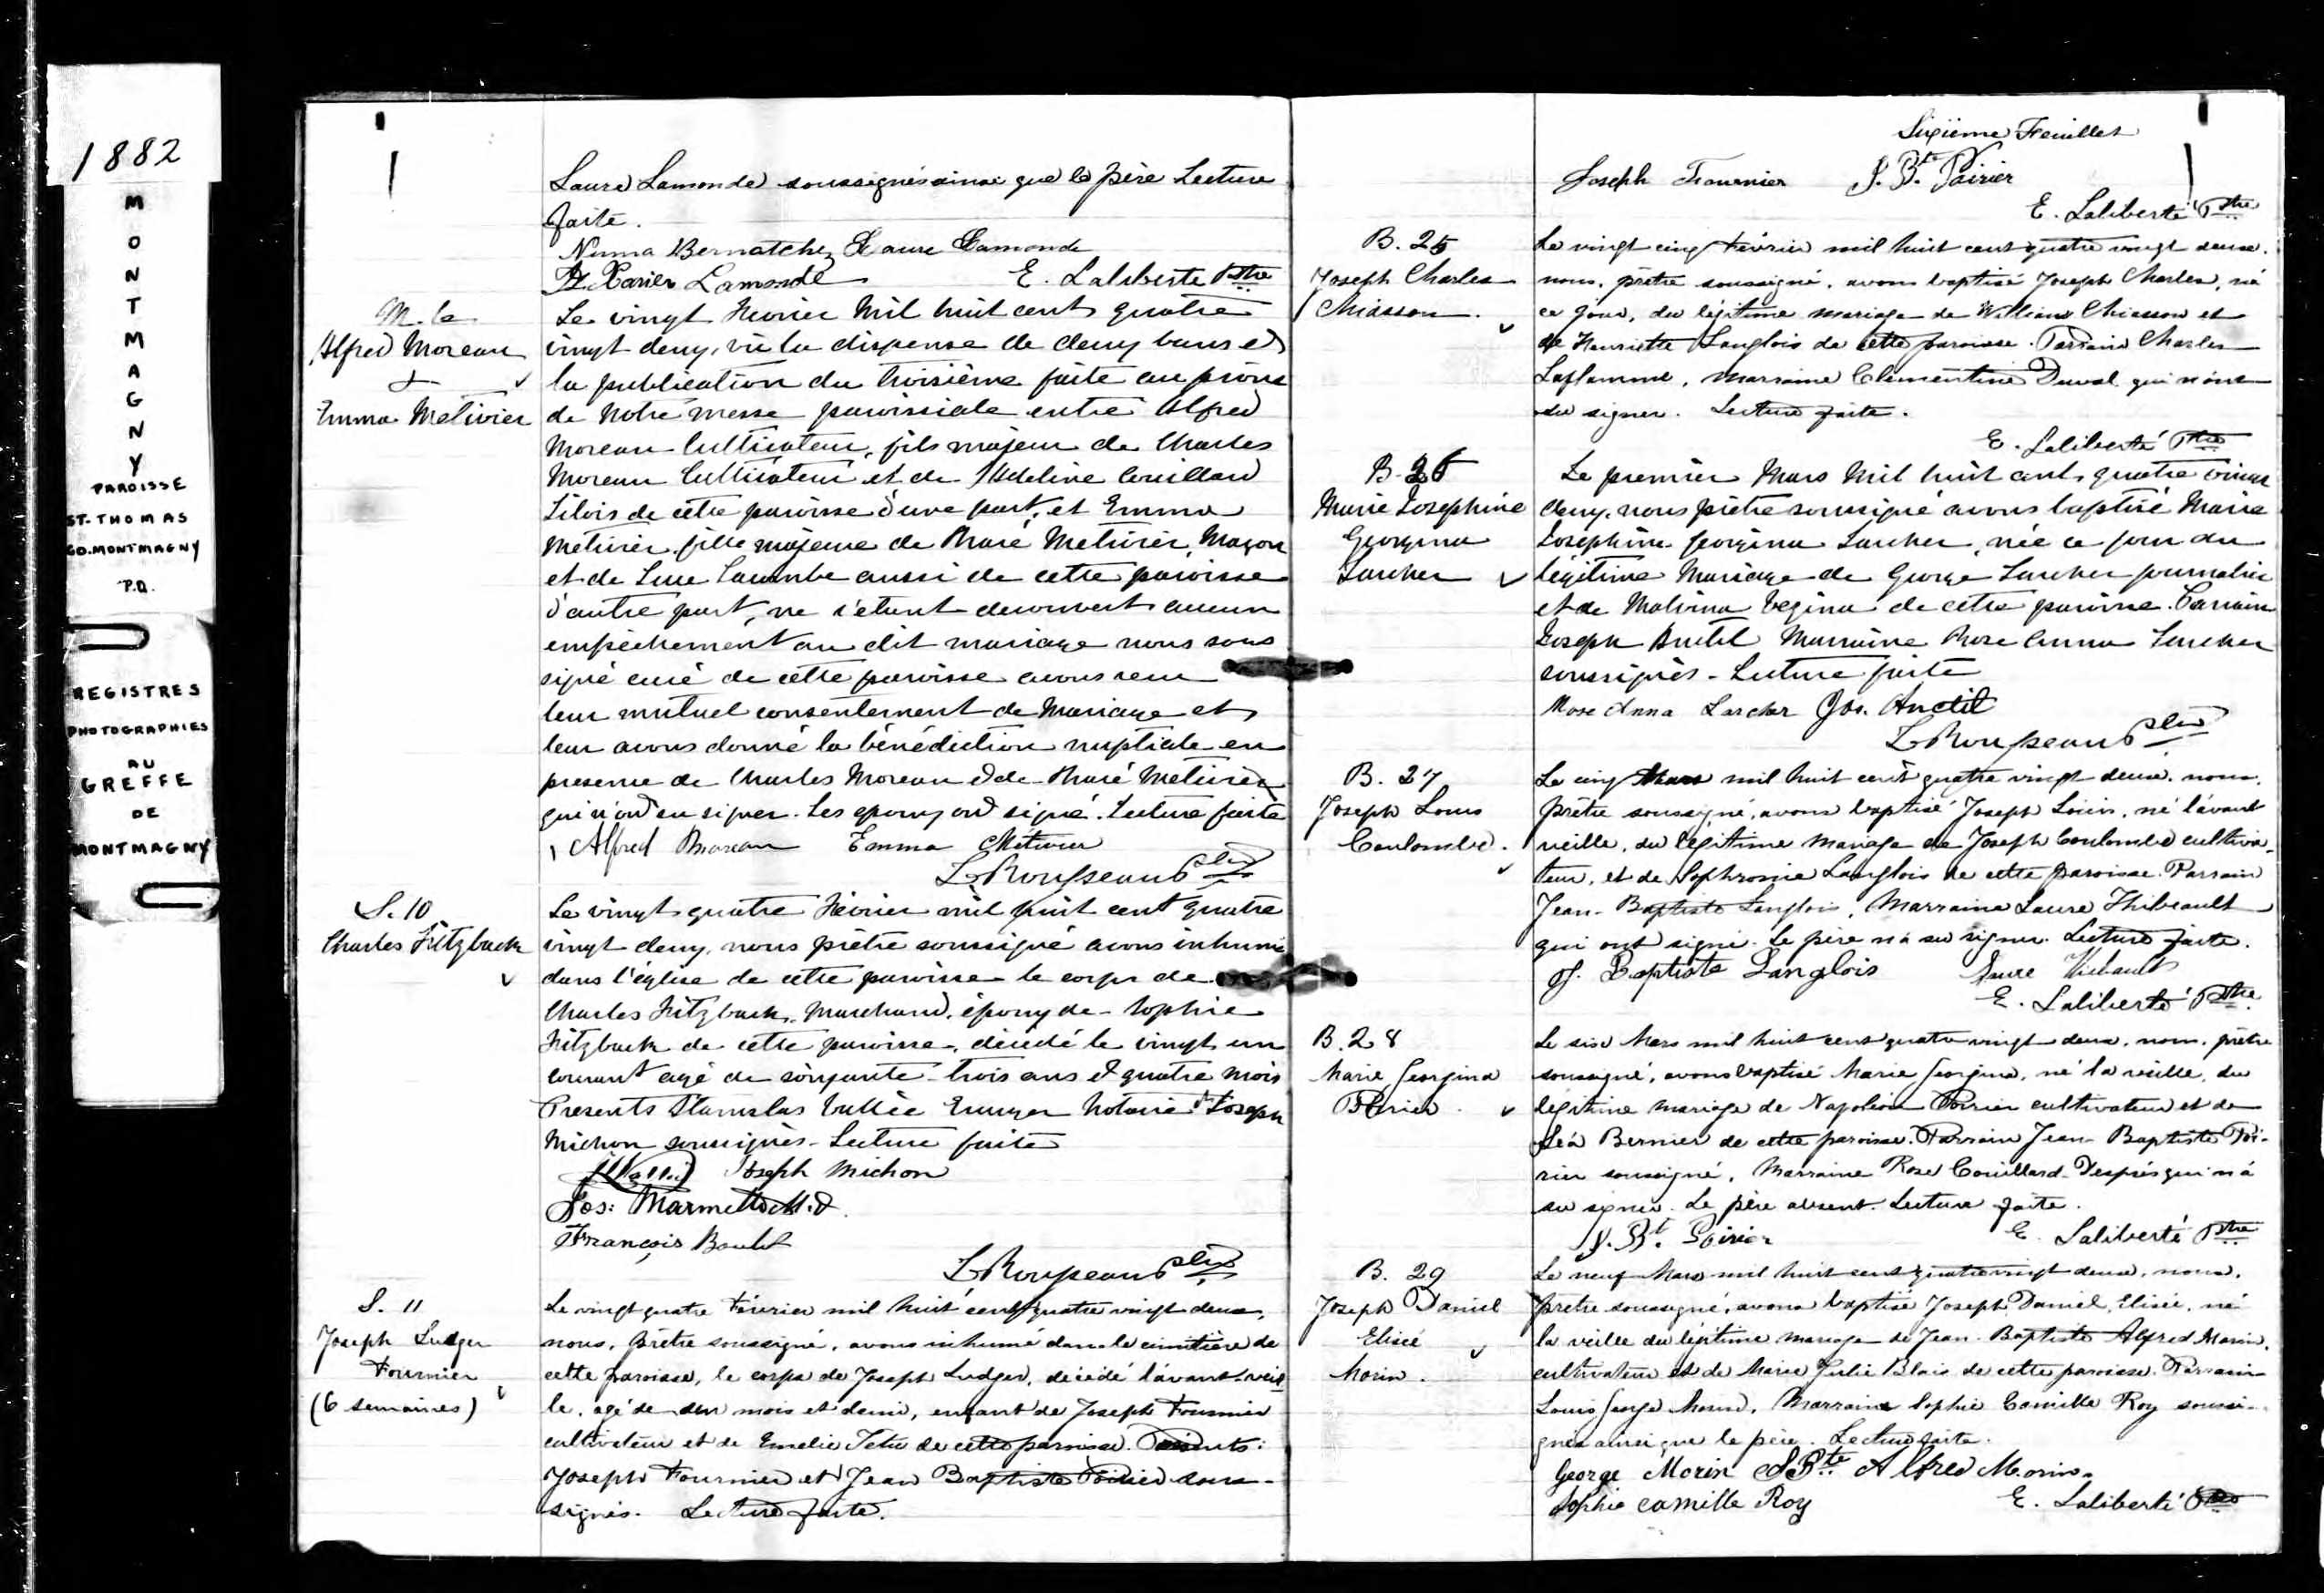 1882
MONTMAGNY
PAROISSE
ST-THOMAS
CO. MONTMAGNY
P.Q.
REGISTRES
PHOTOGRAPHIES
AU
GREFFE
DE
MONTMAGNY
Laure Lamonde soussignés ainsi que le père Lecture
faite.
Numa Bernatchez Laure Lamonde
F. Xavier Lamonde E. Laliberté Ptre
M. 6
Alfred Moreau
&
Emma Metivier
Le vingt Fevrier Mil huit cent quatre
vingt deux, vu la dispense de deux bans et
la publication du troisième faite au prône
de notre messe paroissiale entre Alfred
Moreau Cultivateur, fils majeur de Charles
Moreau Cultivateur et de Adeline Couillard
Lilois de cette paroisse d'une part, et Emma
Metivier fille majeure de Maré Metivier, Maçon
et de Luce Coulombe aussi de cette paroisse
d'autre part, ne s'étant decouvert aucun
empêchement au dit mariage nous sous
signé curé de cette paroisse avons recu
leur mutuel consentement de Mariage et
leur avons donné la bénédiction nuptiale en
presence de Charles Moreau et de Maré Metivier
qui n'ont su signer. Les epoux ont signé. Lecture faite
Alfred Moreau Emma Métivier
L Rousseau Ptre
S. 10
Charles Fitzback
Le vingt quatre Fevrier mil huit cent quatre
vingt deux, nous prêtre soussigné avons inhumé
dans l'église de cette paroisse le corps de
Charles Fitzback, Marchand, époux de Sophie
Fitzback de cette paroisse, décédé le vingt un
courant agé de soixante-trois ans et quatre mois
Presents Stanislas Vallée Ecuyer Notaire & Joseph
Michon soussignés - Lecture faite
Joseph Michon
Jos: Marmette M.D.
François Boulet
L Rousseau Ptre
S. 11
Joseph Ludger
Fournier
(6 semaines)
Le vingt quatre Février mil huit cent quatre vingt deux,
nous, prêtre soussigné, avons inhumé dans le cimétière de
cette paroisse, le corps de Joseph Ludger, décédé l'avant-veil
le, agé de un mois et demi, enfant de Joseph Fournier
cultivateur et de Emelie Tetu de cette paroisse. Présents:
Joseph Fournier et Jean Baptiste Poirier sous-
signés. Lecture faite.
Sixième Feuillet
Joseph Fournier J. Bte Poirier
E. Laliberté Ptre
B. 25
Joseph Charles
Chiasson.
Le vingt cinq Février mil huit cent quatre vingt deux.
nous, prêtre soussigné, avons baptisé Joseph Charles, né
ce jour, du légitime mariage de William Chiasson et
de Henriette Langlois de cette paroisse. Parrain Charles
Laflamme, Marraine Clementine Duval qui n'ont
su signer. Lecture faite.
E. Laliberté Ptre
B. 26
Marie Josephine
Georgina
Larcher
Le premier Mars Mil huit cent quatre vingt
deux, nous prêtre soussigné avons baptisé Marie
Josephine Georgina Larcher, née ce jour du
légitime Mariage de George Larcher journalier
et de Malvina Vezina de cette paroisse. Parrain
Joseph Anctil Marraine Rose Anna Larcher
soussignés - Lecture faite
Rose Anna Larcher Jos. Anctil
L Rousseau Ptre
B. 27
Joseph Louis
Coulombe.
Le cinq Mars mil huit cent quatre vingt deux. nous.
Prêtre soussigné, avons baptisé Joseph Louis, né l'avant
veille, du légitime mariage de Joseph Coulombe cultiva-
teur, et de Sophronie Langlois de cette paroisse. Parrain
Jean-Baptiste Langlois, Marraine Laure Thibeault
qui ont signé. Le père n'a su signer. Lecture faite.
J. Baptiste Langlois Laure Thibault
E. Laliberté Ptre
B. 28
Marie Georgina
Poirier.
Le six Mars mil huit cent quatre vingt deux. nous. prêtre
soussigné, avons baptisé Marie Georgina, né la veille, du
légitime mariage de Napoléon Poirier cultivateur et de
Léa Bernier de cette paroisse. Parrain Jean Baptiste Poi-
rier soussigné, Marraine Rose Couillard-Després qui n'a
su signer. Le père absent. Lecture faite.
J. Bt. Poirier E. Laliberté Ptre
B. 29
Joseph Daniel
Elisée
Morin.
Le neuf Mars mil huit cent quatre vingt deux, nous,
prêtre soussigné, avons baptisé Joseph Daniel Elisée, né
la veille du légitime mariage de Jean-Baptiste Alfred Morin,
cultivateur et de Marie Julie Blais de cette paroisse. Parrain
Louis George Morin, Marraine Sophie Camille Roy soussi-
gnés ainsi que le père. Lecture faite.
George Morin J Bte Alfred Morin
Sophie Camille Roy E. Laliberté Ptre